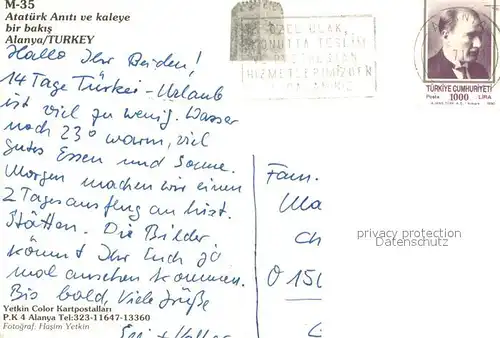 M-35
Atatürk Anıtı ve kaleye
bir bakış
Alanya/TURKEY
Hallo Ihr Beiden!
14 Tage Türkei-Urlaub
ist viel zu wenig. Wasser
noch 23° warm, viel
gutes Essen und Sonne.
Morgen machen wir einen
2 Tagesausflug an hist.
Stätten. Die Bilder
könnt Ihr Euch ja
mal ansehen kommen.
Bis bald, Viele Grüße
Yetkin Color Kartpostalları
P.K 4 Alanya Tel:323-11647-13360
Fotoğraf: Haşim Yetkin
ÖZEL ULAK,
KONUTTA TESLİM
HİZMETLERİMİZDEN
TÜRKİYE CUMHURİYETİ
Posta 1000 LİRA
Fam.
Ma
Ch
O 150
privacy protection
Datenschutz